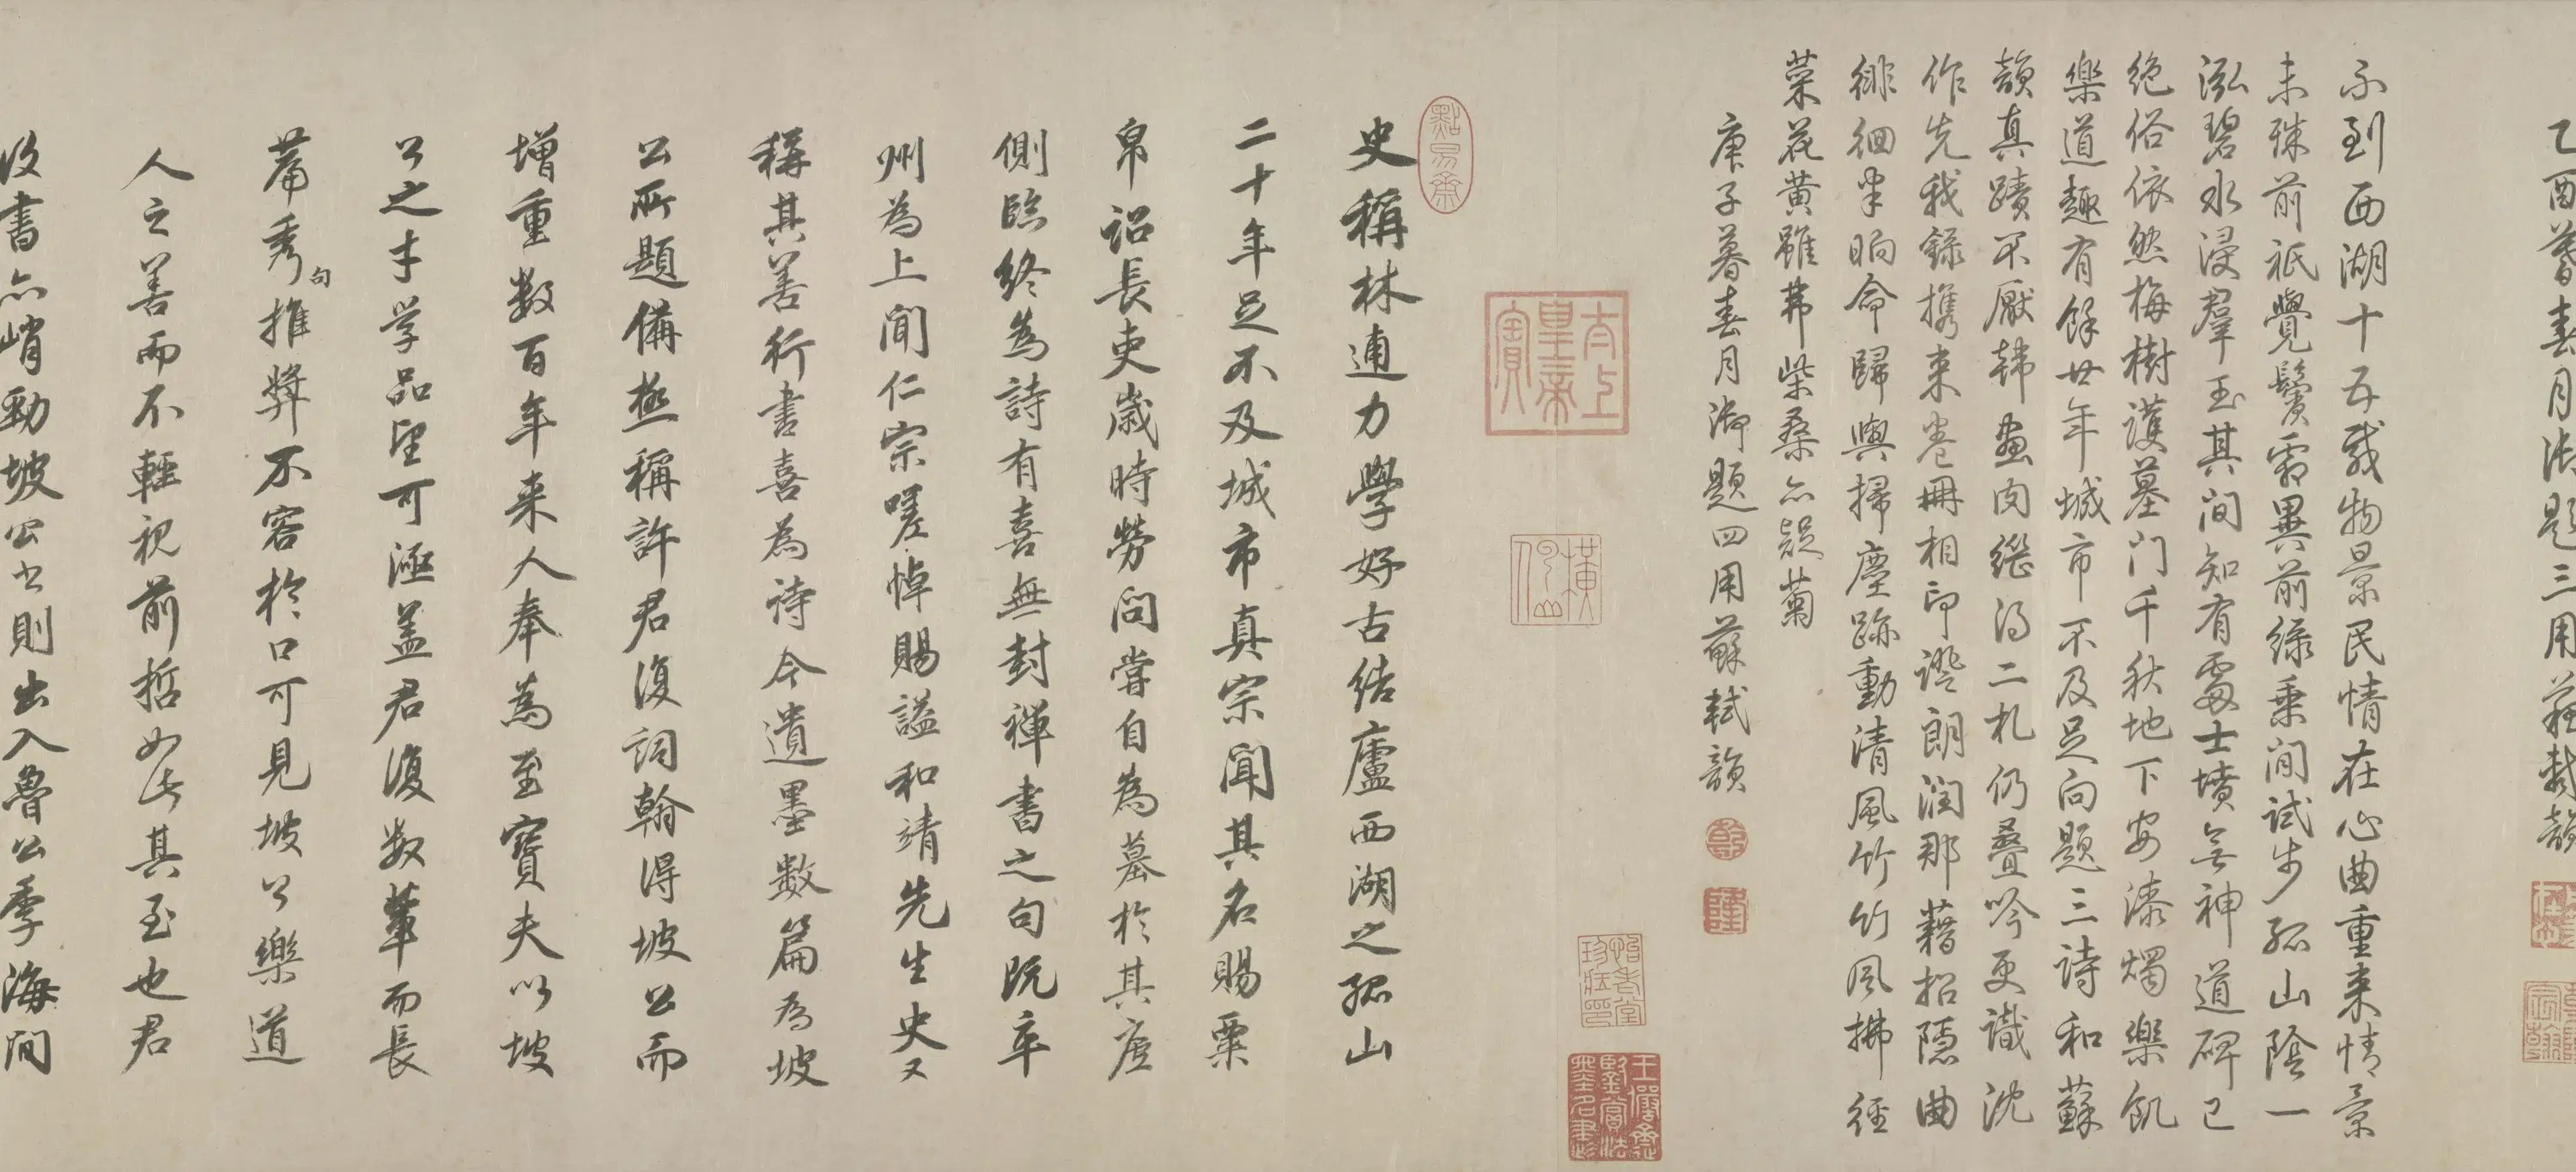 乙酉暮春月御題三用蘇軾韻
不到西湖十五載物景民情在心曲重来情景
未殊前祇覺鬢霜異前緑乗閒試步孤山陰一
泓碧水浸羣玉其间知有霛士墳無神道碑已
絶俗依然梅樹護墓门千秋地下安漆燭樂飢
樂道趣有餘廿年城市不及足向題三诗和蘇
韻真蹟不厭韩畫肉継得二札仍疊吟更識沈
作先我録携来卷冊相印證朗润那藉招隠曲
徘徊半晌命歸輿掃塵跡動清風竹竹风拂径
菜花黄雖弗柴桑亦疑菊
庚子暮春月御題四用蘇軾韻
乾
隆
太上皇帝之寳
史稱林逋力學好古结廬西湖之孤山
二十年足不及城市真宗聞其名賜粟
帛詔長吏歳時勞问嘗自為墓於其廬
側臨终為詩有喜無封禅書之句既卒
州為上闻仁宗嗟悼賜謚和靖先生史又
稱其善行書喜為诗今遺墨數篇為坡
公所題備極稱許君復詞翰得坡公而
增重数百年来人奉為至寳夫以坡
公之才学品望可極盖君復数輩而長
篇秀句推奨不容於口可見坡公樂道
人之善而不輕視前哲如此其至也君
復書亦峭勁坡公書則出入魯公季海间